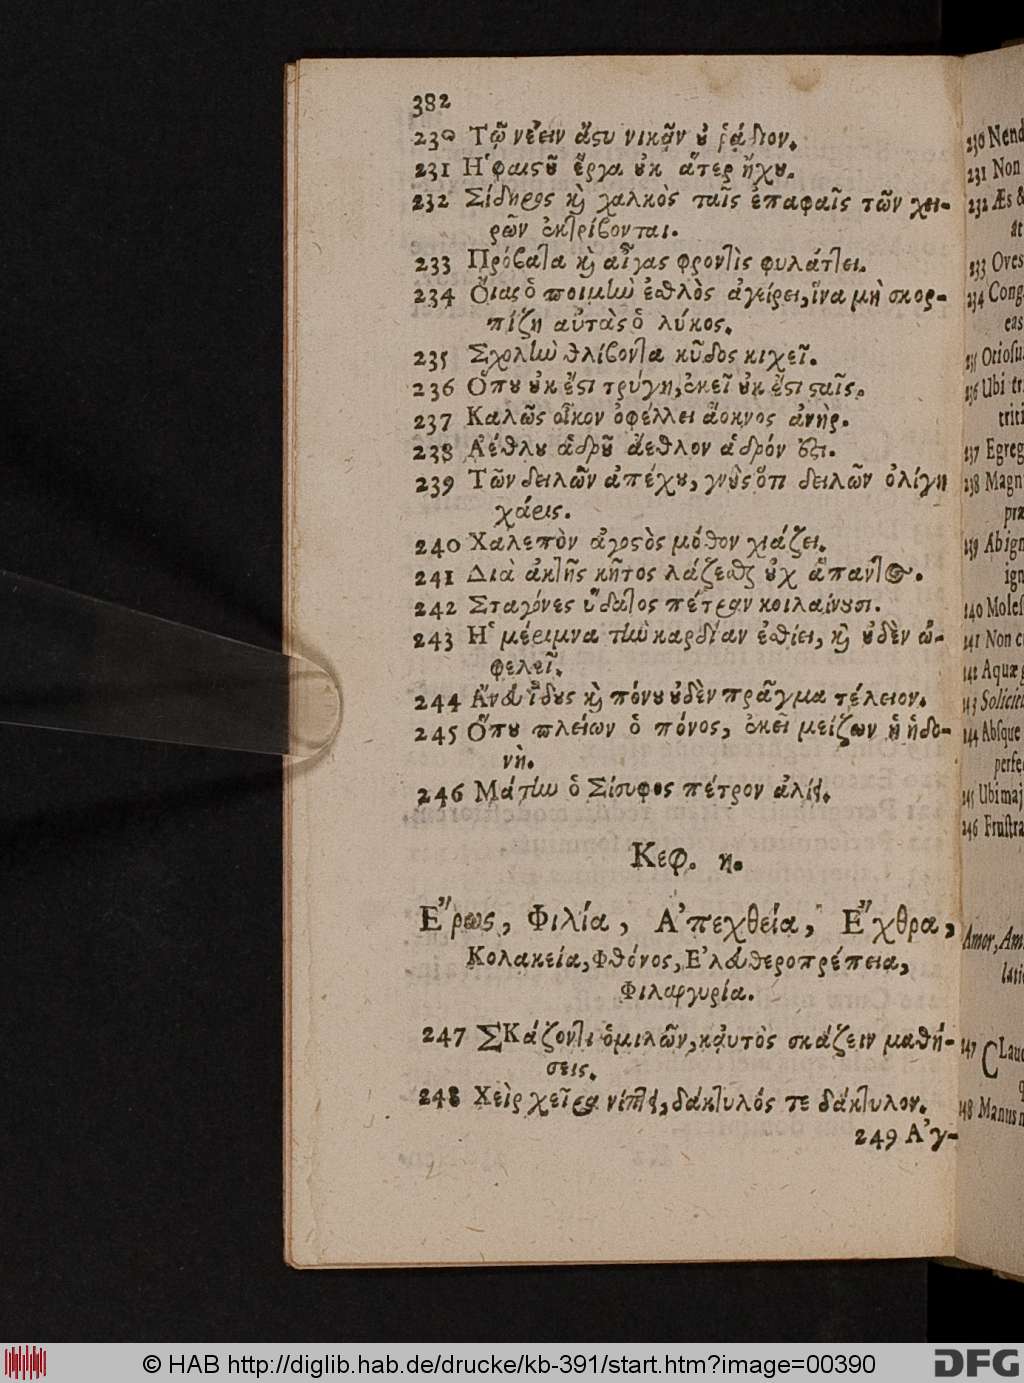 382
230 Τῷ νέειν ἄστυ νικᾷν οὐ ῥᾴδιον.
231 Ἡφαιστοῦ ἔργα οὐκ ἄτερ ἤχου.
232 Σίδηρος καὶ χαλκὸς ταῖς ἐπαφαῖς τῶν χει-
ρῶν ἐκτρίβονται.
233 Πρόβατα καὶ αἶγας φροντὶς φυλάττει.
234 Ὄιας ὁ ποιμὴν ἐσθλὸς ἀγείρει, ἵνα μὴ σκορ-
πίζη αὐτὰς ὁ λύκος.
235 Σχολὴν θλίβοντα κῦδος κιχεῖ.
236 Ὅπου οὐκ ἔστι τρύγη, ἐκεῖ οὐκ ἔστι σταῖς.
237 Καλῶς οἶκον ὀφέλλει ἄοκνος ἀνὴρ.
238 Ἀέθλου ἁδροῦ ἄεθλον ἁδρόν ἐστι.
239 Τῶν δειλῶν ἀπέχου, γνοὺς ὅτι δειλῶν ὀλίγη
χάρις.
240 Χαλεπὸν ἀγρὸς μόθον χιάζει.
241 Διὰ ἀκτῆς κῆτος λάζεσθαι οὐχ ἅπαντος.
242 Σταγόνες ὕδατος πέτραν κοιλαίνουσι.
243 Ἡ μέριμνα τὴν καρδίαν ἐσθίει, καὶ οὐδὲν ὠ-
φελεῖ.
244 Ἄνευ ἴδους καὶ πόνου οὐδὲν πρᾶγμα τέλειον.
245 Ὅπου πλείων ὁ πόνος, ἐκεῖ μείζων ἡ ἡδο-
νὴ.
246 Μάτην ὁ Σίσυφος πέτρον ἀλίει.
Κεφ. η.
Ἔρως, Φιλία, Ἀπεχθεία, Ἔχθρα,
Κολακεία, Φθόνος, Ἐλευθεροπρέπεια,
Φιλαργυρία.
247 ΣΚάζοντι ὁμιλῶν, καὐτὸς σκάζειν μαθή-
σεις.
248 Χεὶρ χεῖρα νίπτει, δάκτυλός τε δάκτυλον.
249 Ἀγ-
230 Nend
231 Non
232 Æs &
233 Oves
234 Cong
eas
235 Otiosu
236 Ubi tr
triti
237 Egreg
238 Magn
præ
239 Ab ign
ign
240 Moles
241 Non
242 Aquæ g
243 Solicit
244 Absque
perfe
245 Ubi maj
246 Frustra
Amor, Am
latio
247 CLaud
q
248 Manus n
© HAB http://diglib.hab.de/drucke/kb-391/start.htm?image=00390
DFG